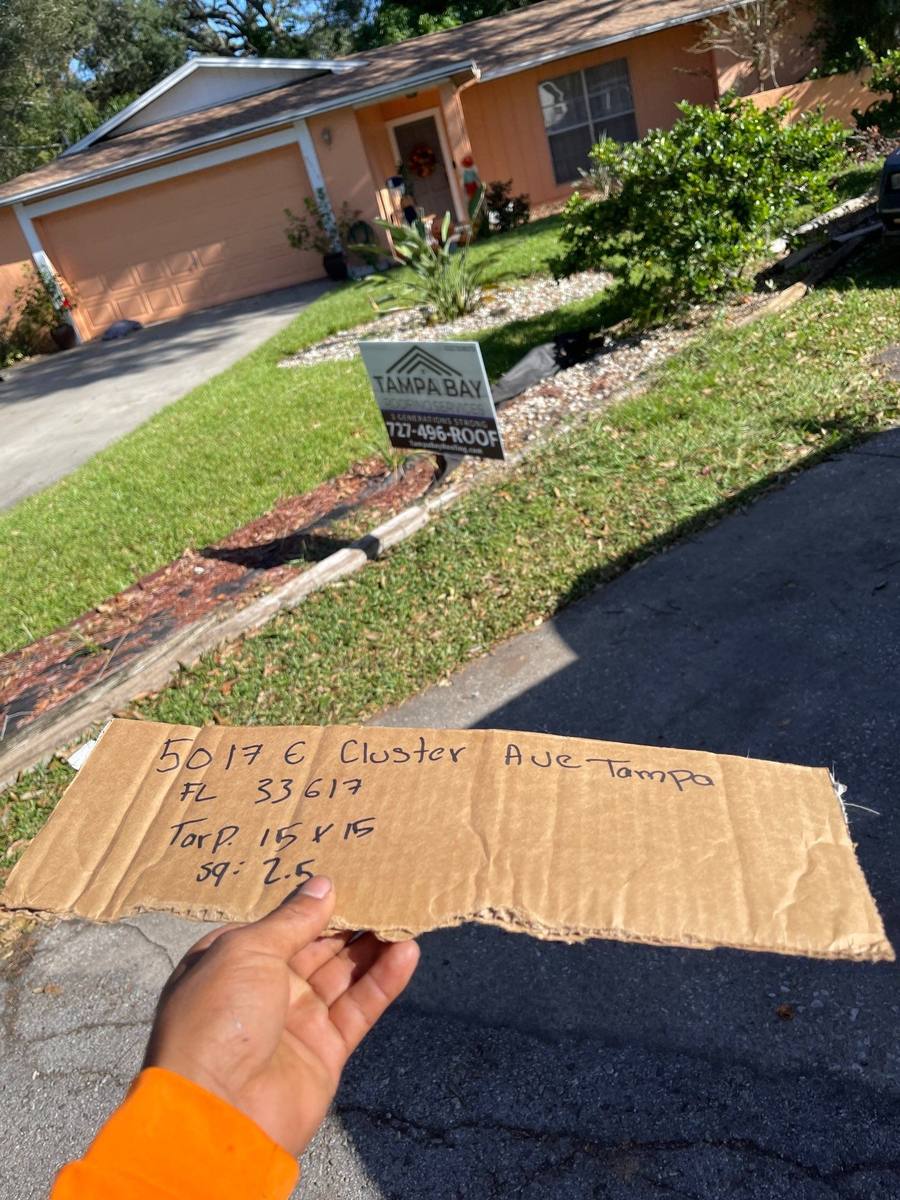 TAMPA BAY
ROOFING SERVICES
3 GENERATIONS STRONG
727-496-ROOF
5017 E Cluster Ave Tampa
FL 33617
Tarp. 15 x 15
sq: 2.5